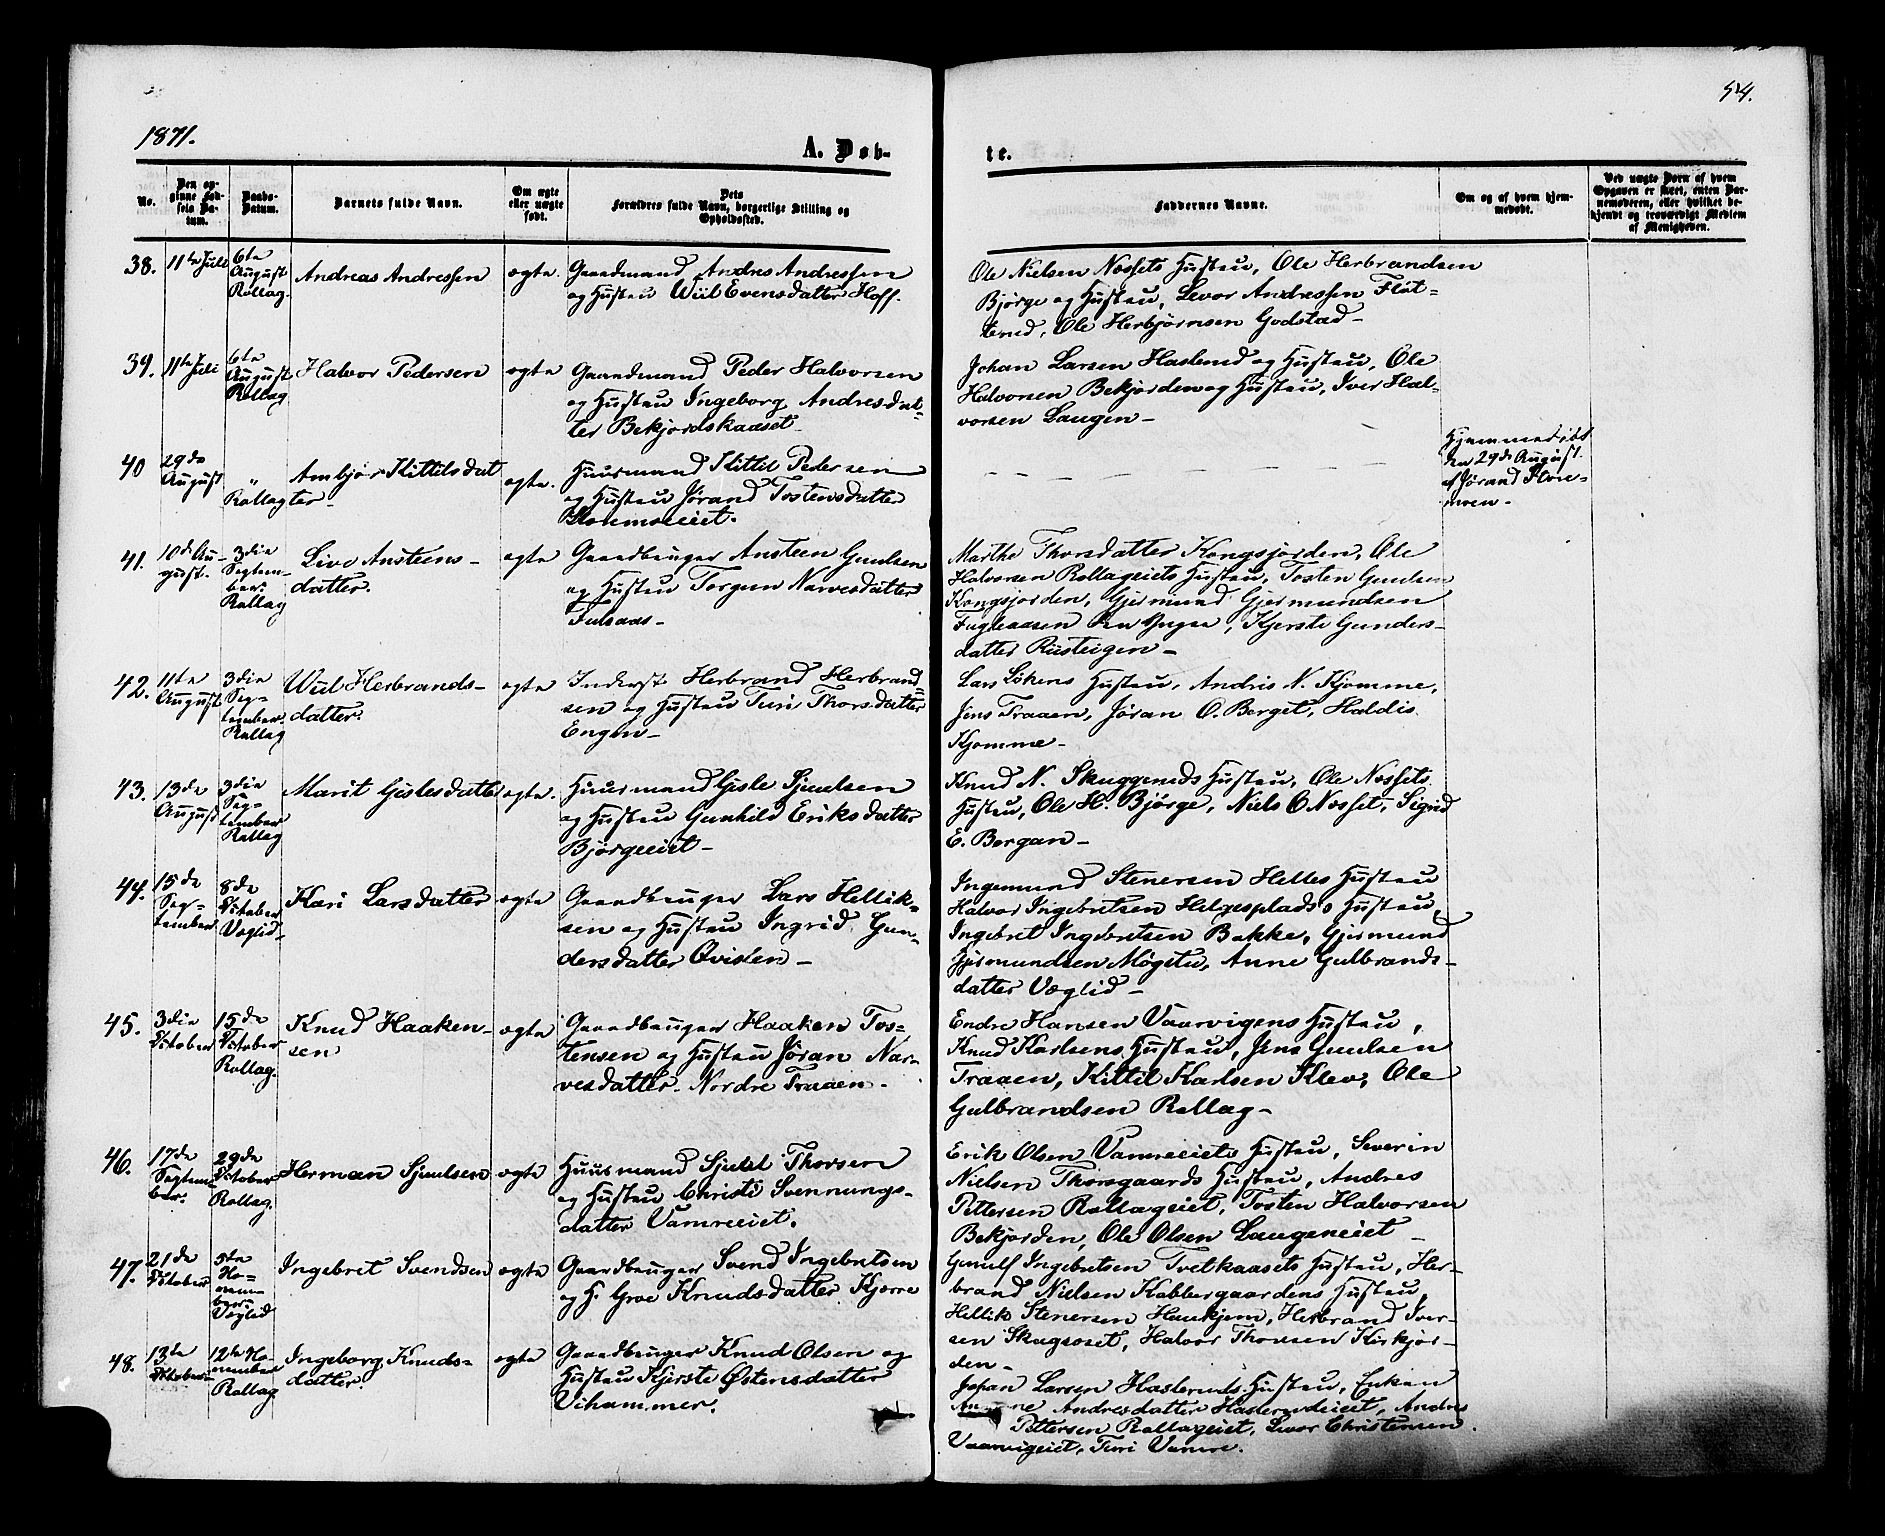 54.
1871.
A. Døb-
te.
No.
Den op-
givne Fød-
sels Da-
tum.
Daabs-
Datum.
Barnets fulde Navn.
Om ægte
eller uægte
født.
Dets
Forældres fulde Navn, borgerlige Stilling og
Opholdssted.
Faddernes Navne.
Om og af hvem hjem-
medøbt.
Ved uægte Børn af hvem
Opgaven er skeet, enten Bar-
nemoderen, eller hvilket be-
kjendt og troværdigt Medlem
af Menigheden.
38.
11te Juli
6te
August
Rollag.
Andreas Andressen
ægte.
Gaardmand Andres Andressen
og Hustru Wiil Evensdatter Hoff.
Ole Nielsen Næssets Hustru, Ole Herbrandsen
Bjørge og Hustru, Levor Andressen Flat-
terud, Ole Herbjørnsen Godstad
39.
11te Juli
6te
August
Rollag
Halvor Pedersen
ægte
Gaardmand Peder Halvorsen
og Hustru Ingeborg Andresdat-
ter Bekjordskaaset
Johan Larsen Haslerud og Hustru, Ole
Halvorsen Bekjorden og Hustru, Iver Hal-
vorsen Laugen
40
29de
August
"
Rollag
Ambjør Kittilsdat
ter
ægte.
Huusmand Kittil Pedersen
og Hustru Jørand Tostensdatter
Stenmoeiet.
Hjemmedøbt
den 29de August
af Jørand Sten-
moen
41.
10de Au-
gust.
3die
Septem-
ber.
Rollag
Live Ansteens-
datter.
ægte
Gaardbruger Ansteen Gunlsen
og Hustru Torgun Narvesdatter
Fulsaas
Marthe Thorsdatter Kongsjorden, Ole
Halvorsen Rollageiets Hustru, Tosten Gunlsen
Kongsjorden, Gjermund Gjermundsen
Fugleaasen den Yngre, Kjersti Gunders-
datter Rusteigen
42.
11te
August
3die
Sep-
tember.
Rollag
Wiil Herbrands-
datter.
ægte
Inderst Herbrand Herbrand-
sen og Hustru Turi Thorsdatter
Engen
Lars Løkens Hustru, Andris N. Kjomme,
Jens Traaen, Jøran O. Berget, Haldis
Kjomme
43.
13de
August
3die
Sep-
tember
Rollag
Marit Gislesdatter
ægte.
Huusmand Gisle Sjulsen
og Hustru Gunhild Eriksdatter
Bjørgeeiet
Knud N. Skuggeruds Hustru, Ole Næssets
Hustru, Ole H. Bjørge, Niels O Næsset, Sigrid
E. Bergan
44.
15de
Sep-
tember
8de
Oktober
Væglid
Kari Larsdatter
ægte
Gaardbruger Lars Hellik-
sen og Hustru Ingrid Gun-
dersdatter Qvislen
Ingemund Stenersen Helles Hustru
Halvor Ingebretsen Helgesplads's Hustru,
Ingebret Ingebretsen Bakke, Gjermund
Gjermundsen Møgstu, Anne Gulbrands-
datter Væglid
45.
3die
Oktober
15de
Oktober
Rollag.
Knud Haaken-
sen
ægte
Gaardbruger Haaken Tos-
tensen og Hustru Jøran Nar-
vesdatter Nordre Traaen
Endre Hansen Vaarvigens Hustru,
Knud Karlsens Hustru, Jens Gunlsen
Traaen, Kittil Karlsen Klev, Ole
Gulbrandsen Rollag
46.
17de
Septem-
ber.
29de
Oktober
Rollag.
Herman Sjulsen
ægte
Huusmand Sjul Thorsen
og Hustru Christi Svennungs-
datter Vamreeiet.
Erik Olsen Vamreeiets Hustru, Severin
Nielsen Thorsgaards Hustru, Andres
Pettersen Rollageiet, Tosten Halvorsen
Bekjorden, Ole Olsen Laugeneiet
47.
21de
Oktober
5te
No-
vem-
ber
Væglid
Ingebret Svendsen
ægte
Gaardbruger Svend Ingebretsen
og H. Groe Knudsdatter Kjørre
Gunulf Ingebretsen Tvetkaasets Hustru, Her-
brand Nielsen Kobbergaardens Hustru,
Hellik Stenersen Haukjem, Herbrand Iver-
sen Skugsoset, Halvor Thorsen Kirkjor-
den
48.
13de
Oktober
12te No-
vember
Rollag
Ingeborg Knuds-
datter.
ægte
Gaardbruger Knud Olsen og
Hustru Kjersti Østensdatter
Vihammer.
Johan Larsen Hasleruds Hustru, Enken
Andresdatter Hasleruddeiet, Andres
Pettersen Rollageiet, Levor Christensen
Vaarvigeiet, Turi Vamre.